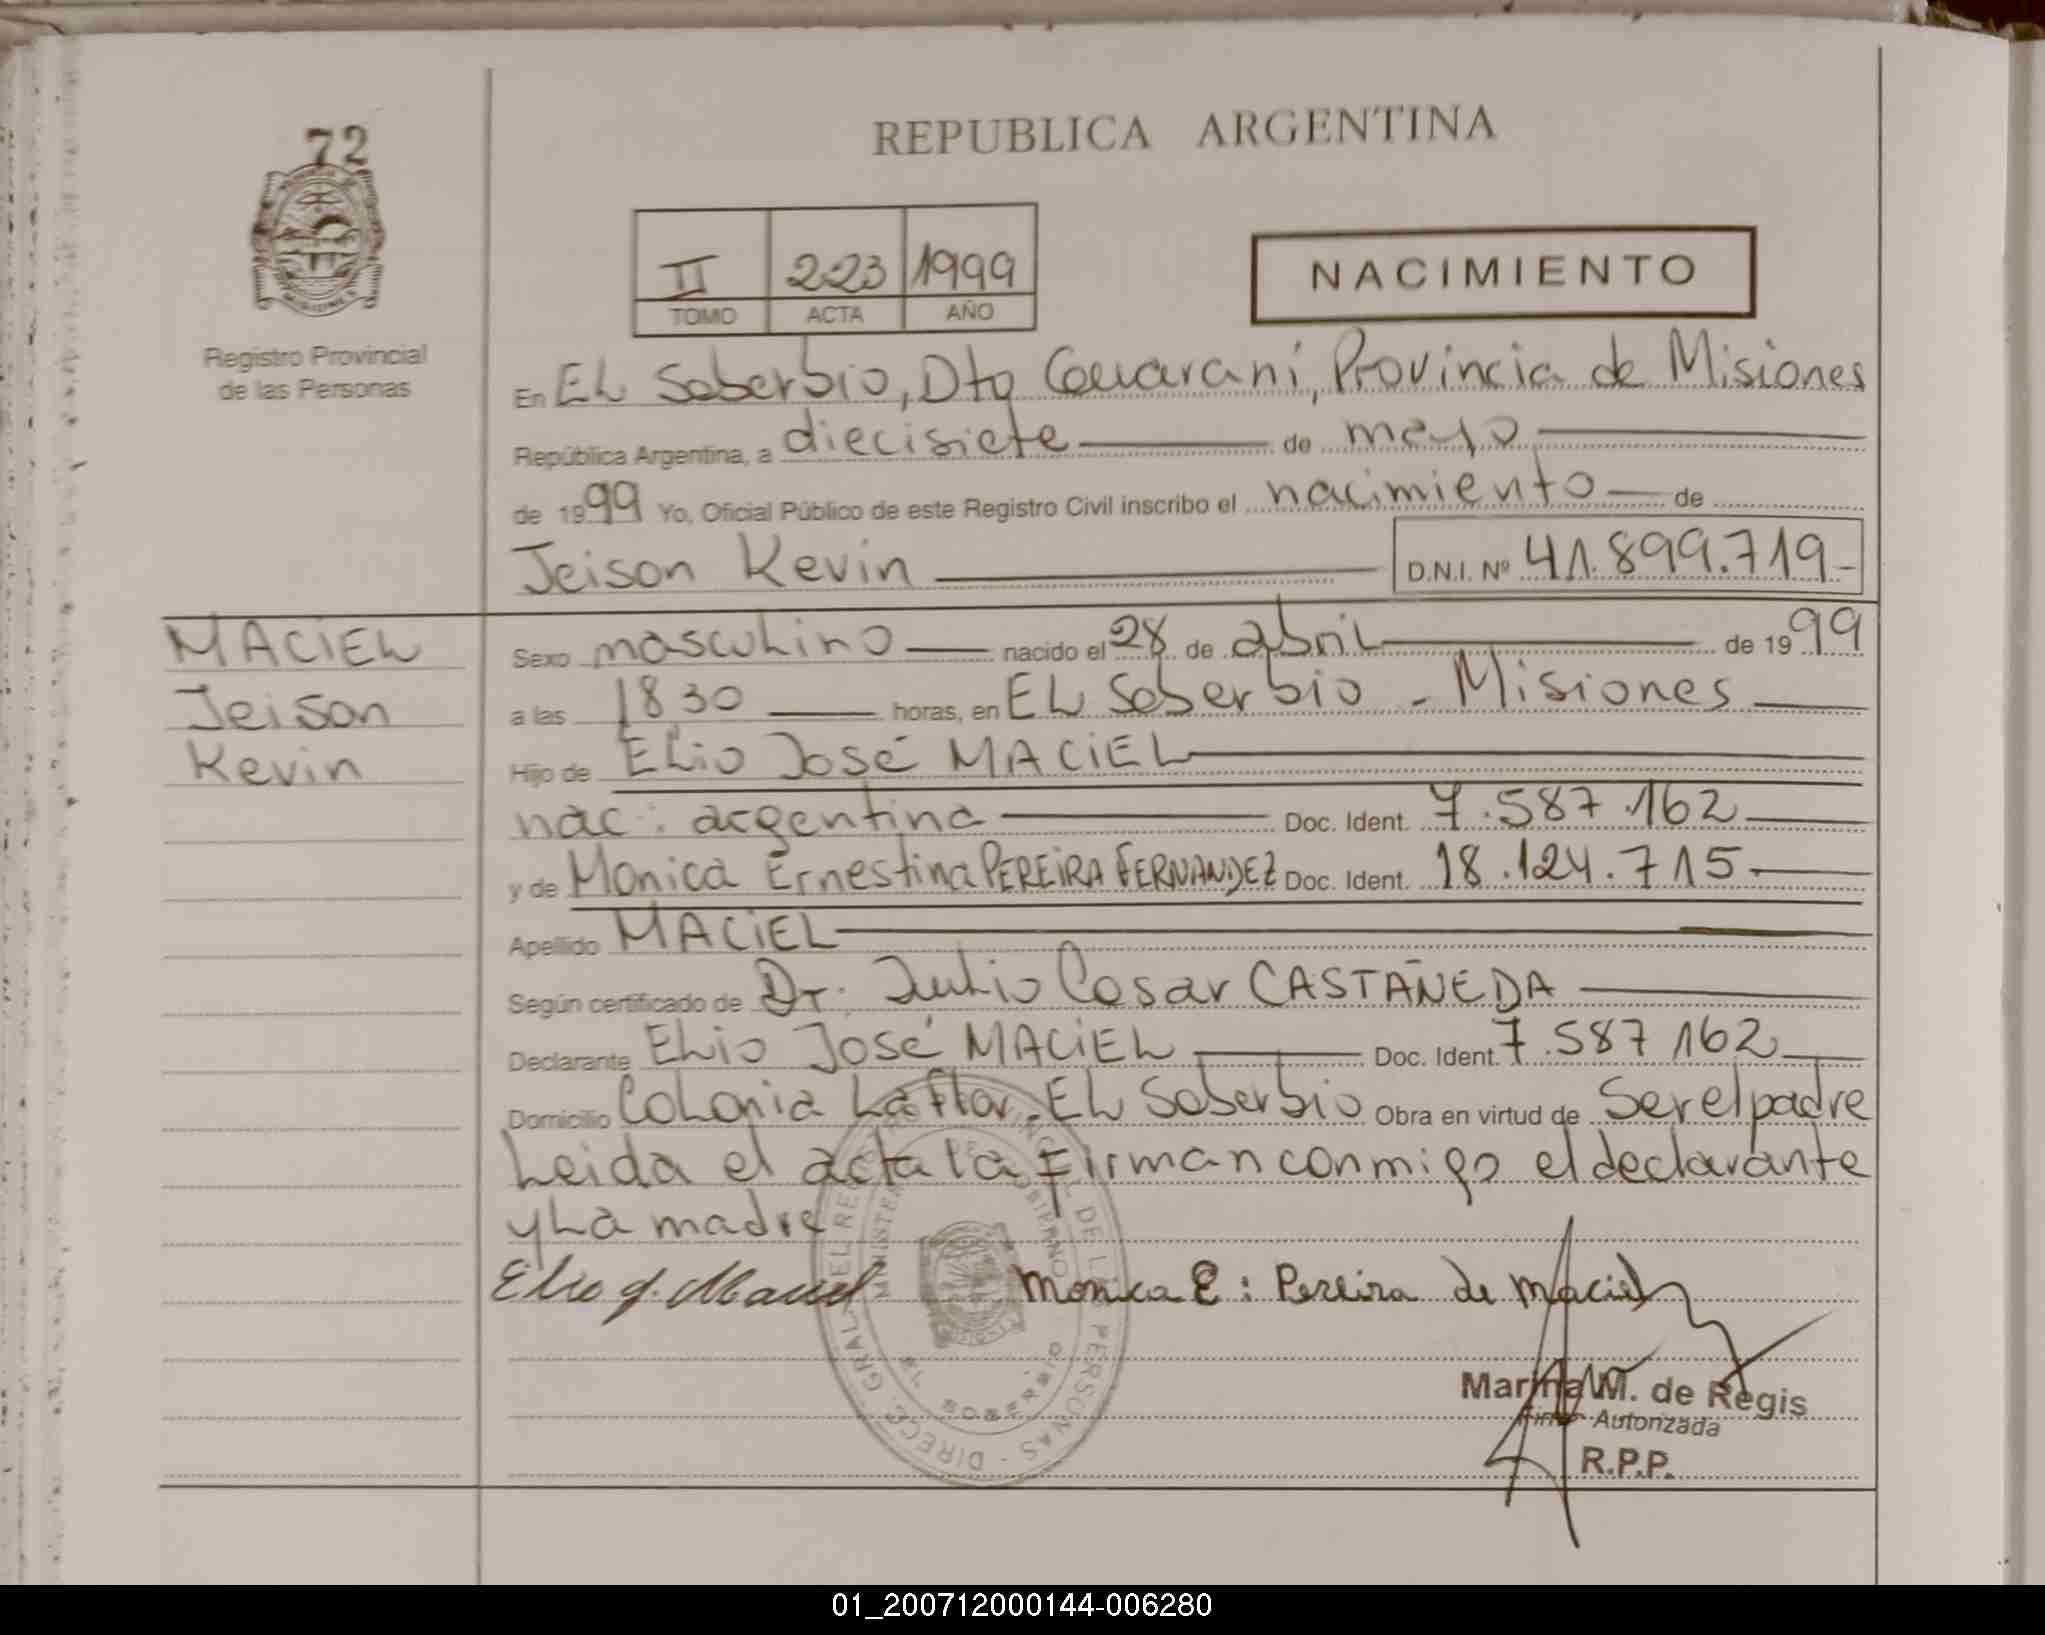 72
REPUBLICA ARGENTINA
II 223 1999
TOMO ACTA AÑO
NACIMIENTO
Registro Provincial
de las Personas
En EL Soberbio, Dto Guaraní, Provincia de Misiones
República Argentina, a diecisiete de mayo
de 1999 Yo, Oficial Público de este Registro Civil inscribo el nacimiento de
Jeison Kevin D.N.I. Nº 41.899.719-
MACIEL
Jeison
Kevin
Sexo masculino nacido el 28 de abril de 1999
a las 1830 horas, en EL Soberbio - Misiones
Hijo de ELio José MACIEL
nac: argentina Doc. Ident. 7.587.162
y de Monica Ernestina PEREIRA FERNANDEZ Doc. Ident. 18.124.715
Apellido MACIEL
Según certificado de Dr. Julio Cesar CASTAÑEDA
Declarante ELio José MACIEL Doc. Ident. 7.587 162
Domicilio Colonia La Flor - EL Soberbio Obra en virtud de Ser el padre
Leida el acta la firman conmigo el declarante
y La madre
Elio J. Maciel Monica E: Pereira de Maciel
DIRECC. GRAL. DEL REG. PROVINCIAL DE LAS PERSONAS
MINISTERIO DE GOBIERNO
EL SOBERBIO
Marina M. de Regis
Firma Autorizada
R.P.P.
01_200712000144-006280